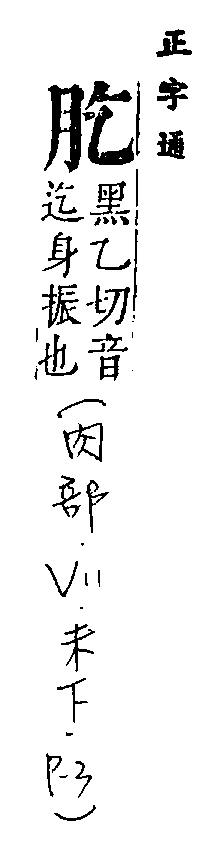 正字通
肐
黑乙切音
迄身振也
(肉部.VII.未下.P.3)